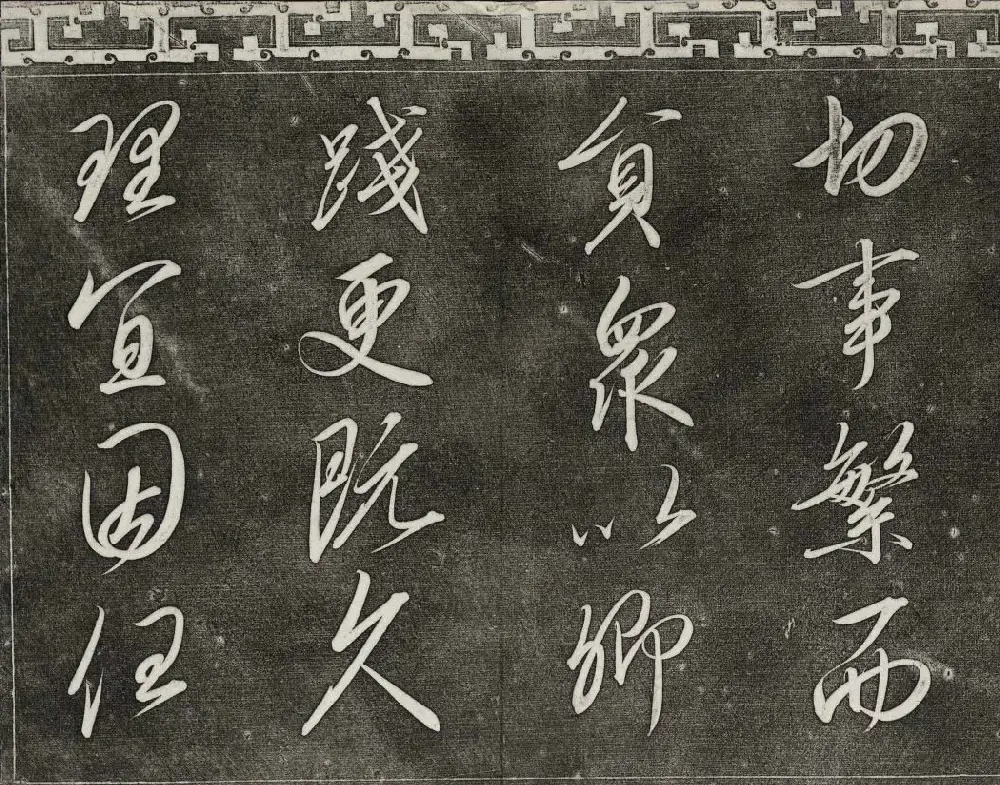 切事繁而
負衆以卿
踐更既久
理宜因任